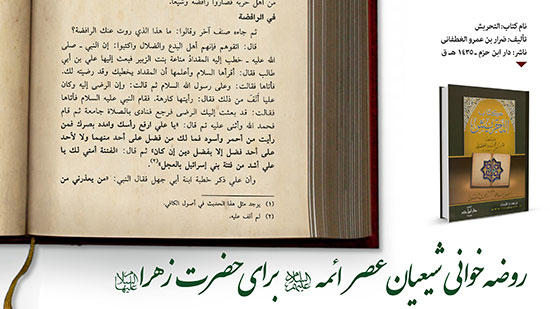 نام کتاب: التحریش
تألیف: ضرار بن عمرو الغطفانی
ناشر: دار ابن حزم ـ ۱۴۳۵ هـ ق
من أهل حربه فصاروا رافضة وشيعا.
في الرافضة
ثم جاءه صنف آخر وقالوا: ما هذا الذي روت عنك الرافضة؟
قال: اتقوهم فإنهم أهل البدع والضلال واكتبوا: إن النبي ـ صلى
الله عليه ـ خطب إليه المقداد ضباعة بنت الزبير فبعث إليها علي بن أبي
طالب فقال: أقرأها السلام وأعلمها أن المقداد يخطبك وقد رضيته لك.
فأتاها فقالت: وعلى رسول الله السلام ثم قالت: وإن الرضى إليه وكان
عليا من ذلك فقال: رأيتها كارهة. فقام النبي عليه السلام فأتاها
فقالت: قد بعثت إليك الرضى فرجع فنادى بالصلاة جامعة ثم قام
فحمد الله وأثنى عليه ثم قال: «يا علي ارفع رأسك وامدد بصرك فمن
رأيت من أحمر وأسود فما لك من فضل على أحد منهما ولا لأحد
على أحد فضل إلا بفضل دين إن كان» ثم قال: «الفتنة أمتي لك يا
علي أشد من فتنة بني إسرائيل بالعجل»(٢).
وأن علي ذكر خطبة ابنة أبي جهل فقال النبي: «من يعذرني من
(١) يوجد مثل هذا الحديث في أصول الكافي.
(٢) لم أقف عليه.
روضه خوانی شیعیان عصر ائمه علیهم السلام برای حضرت زهرا علیها السلام